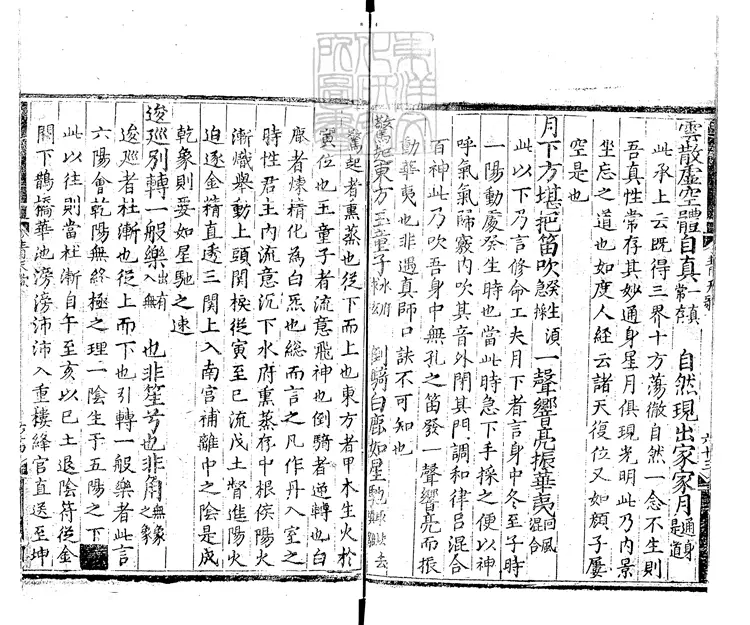 雲散虛空體自真常存真自然現出家家月通身是道
此承上云既得三界十方蕩徹自然一念不生則
吾真性常存其妙通身星月俱現光明此乃內景
坐忘之道也如度人經云諸天復位又如顏子屢
空是也
月下方堪把笛吹癸生須急採一聲響亮振華夷回風混合
此以下乃言修命工夫月下者言身中冬至子時
一陽動處癸生時也當此時急下手採之便以神
呼氣氣歸竅內吹其音外閉其門調和律呂混合
百神此乃吹吾身中無孔之笛發一聲響亮而振
動華夷也非遇真師口訣不可知也
驚起東方玉童子倒騎白鹿如星馳
驚起者熏蒸也從下而上也東方者甲木生火於
寅位也玉童子者流意飛神也倒騎者逆轉也白
鹿者煉精化為白炁也總而言之凡作丹入室之
時性君主內流意沉下水府熏蒸存中根侯陽火
漸熾舉動上頭關棙從寅至巳流戊土督進陽火
迫逐金精直透三關上入南宮補離中之陰是成
乾象則妥如星馳之速
逡巡別轉一般樂出有入無也非笙兮也非角無象之象
逡巡者杜漸也從上而下也引轉一般樂者此言
六陽會乾陽無終極之理一陰生于五陽之下
此以往則當杜漸自午至亥以巳土退陰符從金
關下鵲橋華池滂滂沛沛入重樓絳宮直送至坤